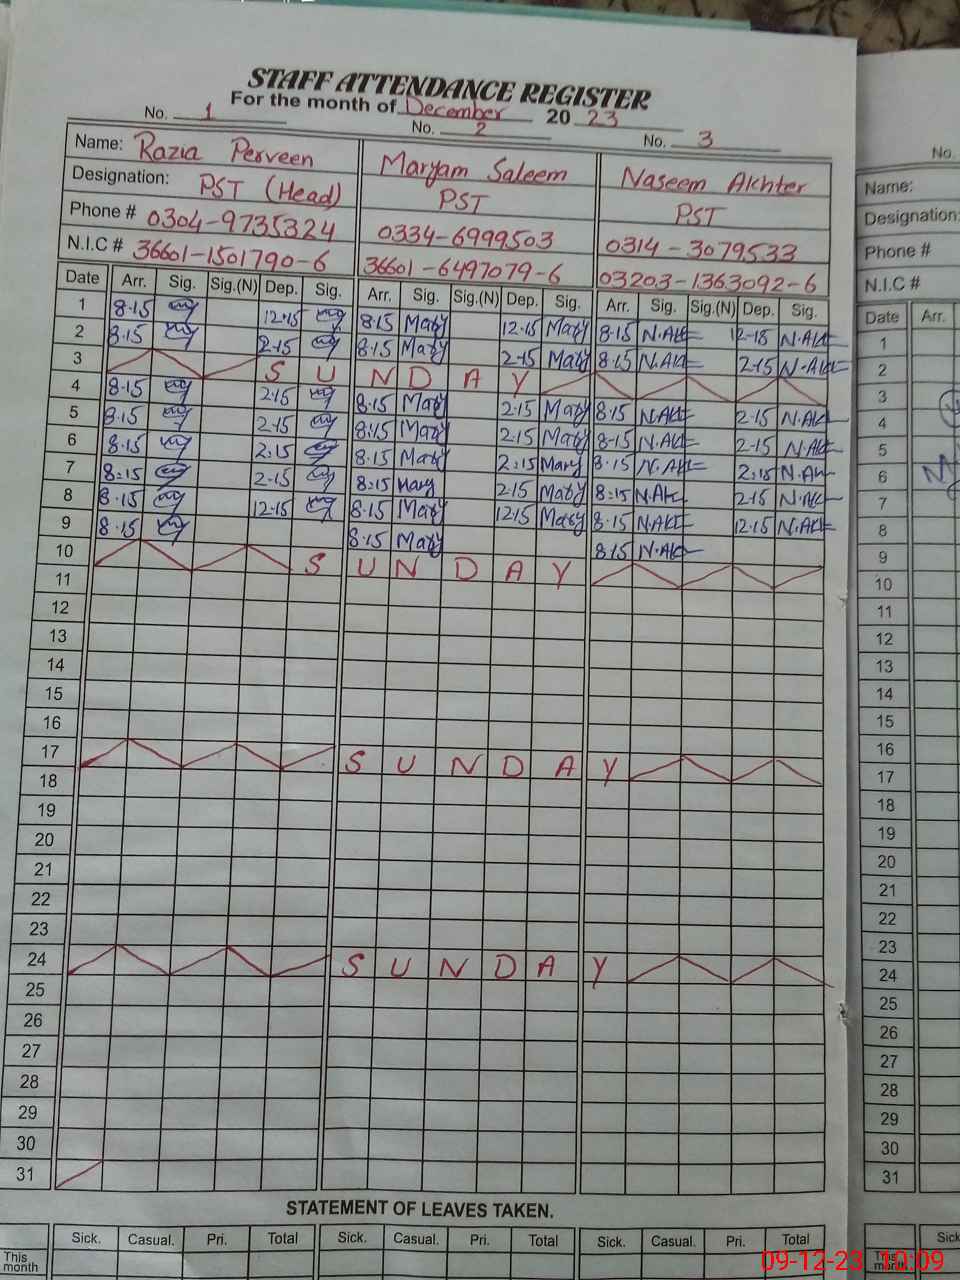 STAFF ATTENDANCE REGISTER
For the month of December 20 23
No. 1 No. 2 No. 3
Name: Razia Perveen Maryam Saleem Naseem Akhter
Designation: PST (Head) PST PST
Phone # 0304-9735324 0334-6999503 0314-3079533
N.I.C # 36601-1501790-6 36601-6497079-6 03203-1363092-6
Date Arr. Sig. Sig.(N) Dep. Sig. Arr. Sig. Sig.(N) Dep. Sig. Arr. Sig. Sig.(N) Dep. Sig.
1 8.15 12.15 8.15 Mary 12.15 Mary 8.15 N.Ak 12-15 N.Ak
2 8.15 2-15 8.15 Mary 2-15 Mary 8.15 N.Ak 2-15 N.Ak
3 SUNDAY
4 8.15 2.15 8.15 Mary 2.15 Mary 8.15 N.Ak 2.15 N.Ak
5 8.15 2.15 8:15 Mary 2.15 Mary 8-15 N.Ak 2-15 N.Ak
6 8.15 2:15 8.15 Mary 2:15 Mary 8.15 N.Ak 2:15 N.Ak
7 8:15 2.15 8:15 Mary 2.15 Mary 8:15 N.Ak 2.15 N.Ak
8 8.15 12.15 8.15 Mary 12.15 Mary 8.15 N.Ak 12.15 N.Ak
9 8.15 8.15 Mary 8.15 N.Ak
10 SUNDAY
11
12
13
14
15
16
17 SUNDAY
18
19
20
21
22
23
24 SUNDAY
25
26
27
28
29
30
31
STATEMENT OF LEAVES TAKEN.
Sick. Casual. Pri. Total Sick. Casual. Pri. Total Sick. Casual. Pri. Total
This month
No.
Name:
Designation:
Phone #
N.I.C #
Date Arr.
1
2
3
4
5
6
7
8
9
10
11
12
13
14
15
16
17
18
19
20
21
22
23
24
25
26
27
28
29
30
31
Sick
This month
09-12-23 10:09